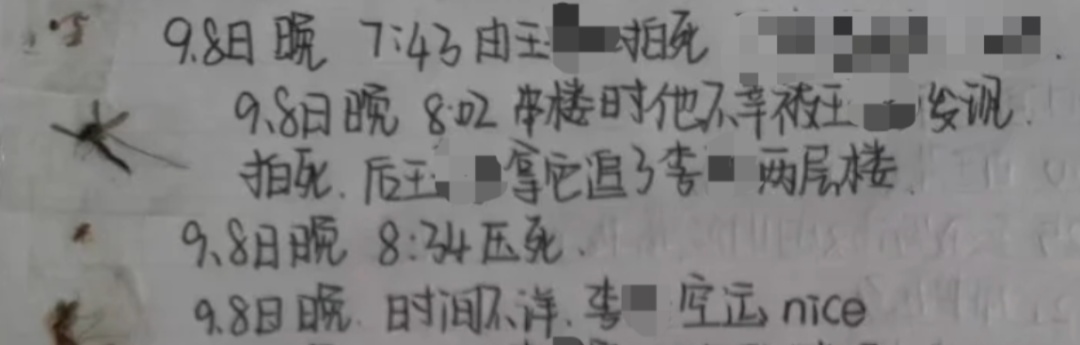 9.8日晚 7:43 由王 拍死
9.8日晚 8:02 串楼时他不幸被王 发现.
拍死. 后王 拿它追了李 两层楼.
9.8日晚 8:34 压死.
9.8日晚. 时间不详. 李 空运 nice